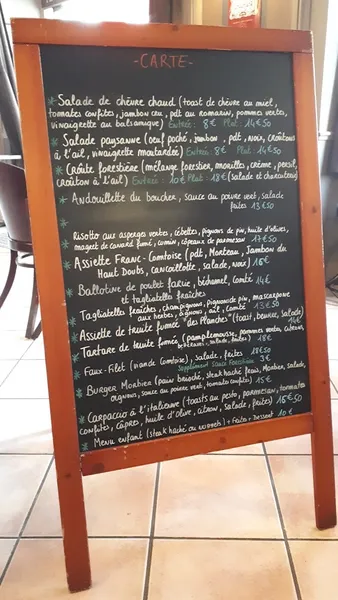 -CARTE-
* Salade de chèvre chaud (toast de chèvre au miel,
tomates confites, jambon cru, pdt au romarin, pommes vertes,
vinaigrette au balsamique) Entrée: 8€ Plat: 14€50
* Salade paysanne (oeuf poché, jambon, pdt, noix, croûtons
à l'ail, vinaigrette moutardée) Entrée: 8€ Plat: 14€50
* Croûte forestière (mélange forestier, morilles, crème, persil,
croûton à l'ail) Entrée: 10€ Plat: 18€ (salade et charcuterie)
* Andouillette du boucher, sauce au poivre vert, salade
frites 13€50
* Risotto aux asperges vertes, cébettes, pignons de pin, huile d'olives,
magret de canard fumé, cumin, copeaux de parmesan 17€50
* Assiette Franc-Comtoise (pdt, Morteau, Jambon du
Haut Doubs, cancoillotte, salade, noix) 16€
* Ballotine de poulet farcie, béchamel, comté 14€
et tagliatelles fraîches
* Tagliatelles fraîches, champignons, pignons de pin, mascarpone
aux herbes, oignons, ail, comté 13€50
* Assiette de truite fumée "des Planches" (toast, beurre, salade)
* Tartare de truite fumée (pamplemousse, pommes vertes, citron,
salade, frites) 18€
* Faux-Filet (viande Comtoise), salade, frites 18€50
Supplément sauce Forestière 3€
* Burger Morbier (pain brioché, steak haché frais, Morbier, salade,
oignons, sauce au poivre vert, tomates confites) 15€
* Carpaccio à l'italienne (toasts au pesto, parmesan, tomates
confites, câpres, huile d'olive, citron, salade, frites) 15€50
* Menu enfant (steak haché ou nuggets) + Frites + Dessert 10€